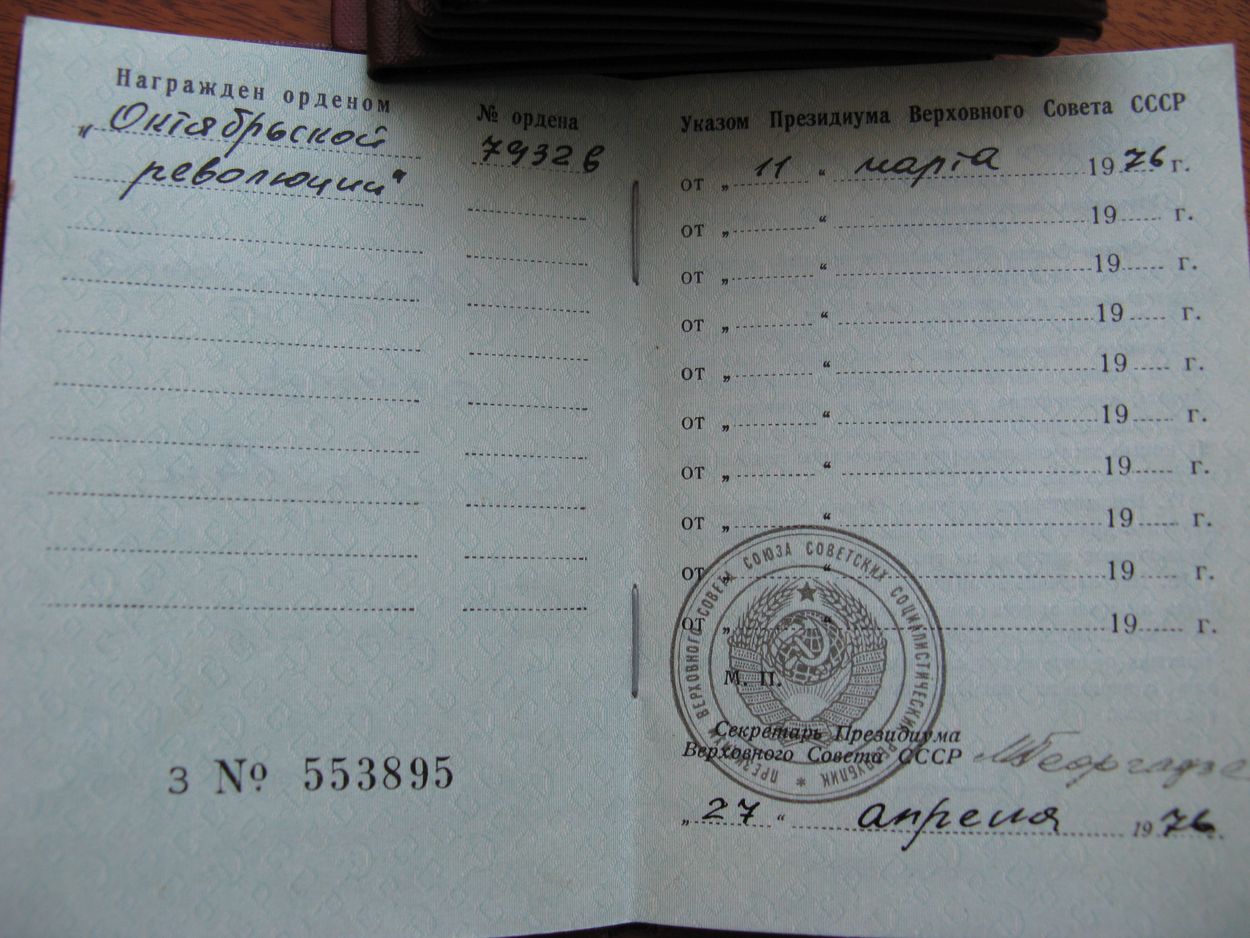 Награжден орденом
„Октябрьской
революции“
№ ордена
79326
З № 553895
Указом Президиума Верховного Совета СССР
от „ 11 “ марта 1976 г.
от „ “ 19 г.
от „ “ 19 г.
от „ “ 19 г.
от „ “ 19 г.
от „ “ 19 г.
от „ “ 19 г.
от „ “ 19 г.
от „ “ 19 г.
от „ “ 19 г.
ПРЕЗИДИУМ ВЕРХОВНОГО СОВЕТА СОЮЗА СОВЕТСКИХ СОЦИАЛИСТИЧЕСКИХ РЕСПУБЛИК *
М. П.
Секретарь Президиума
Верховного Совета СССР
МГеоргадзе
„ 27 “ апреля 1976 г.